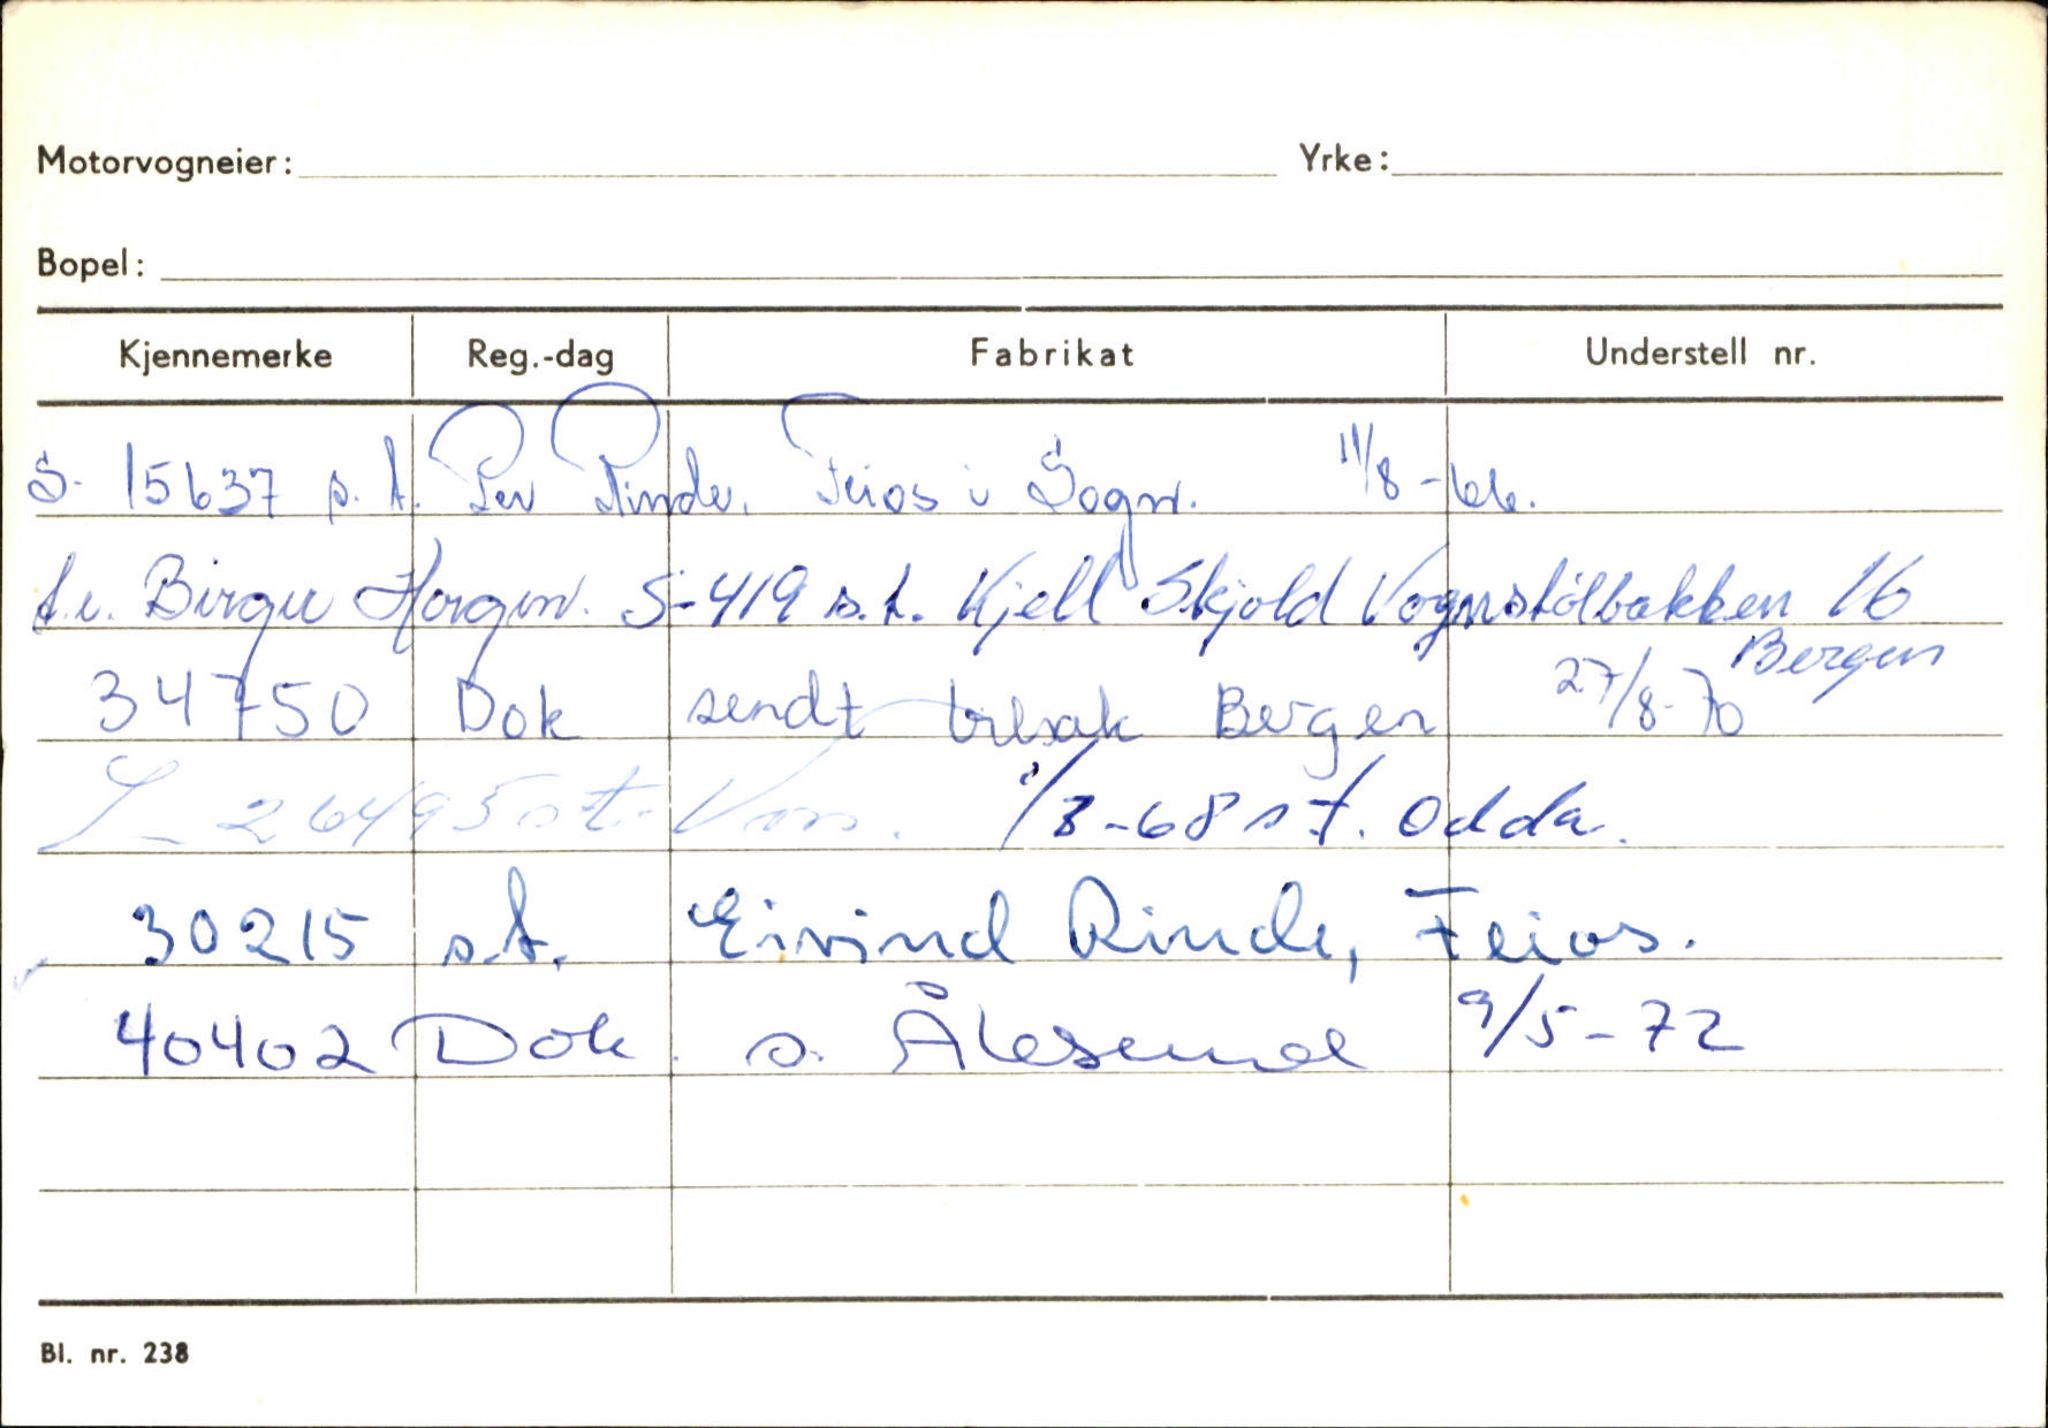 Motorvogneier: Yrke:
Bopel:
Kjennemerke Reg.-dag Fabrikat Understell nr.
S- 15637 s.t. Per Rinde. Feios i Sogn. 11/8-66.
Birger Horgen. S-419 s.t. Kjell Skjold Vognstølbakken 16
Bergen
34750 Dok sendt Bergen 27/8-70
26495 st. 1/3-68 s t. Odda.
30215 s.t. Eivind Rinde, Feios.
40402 Dok s. Ålesund 9/5-72
Bl. nr. 238